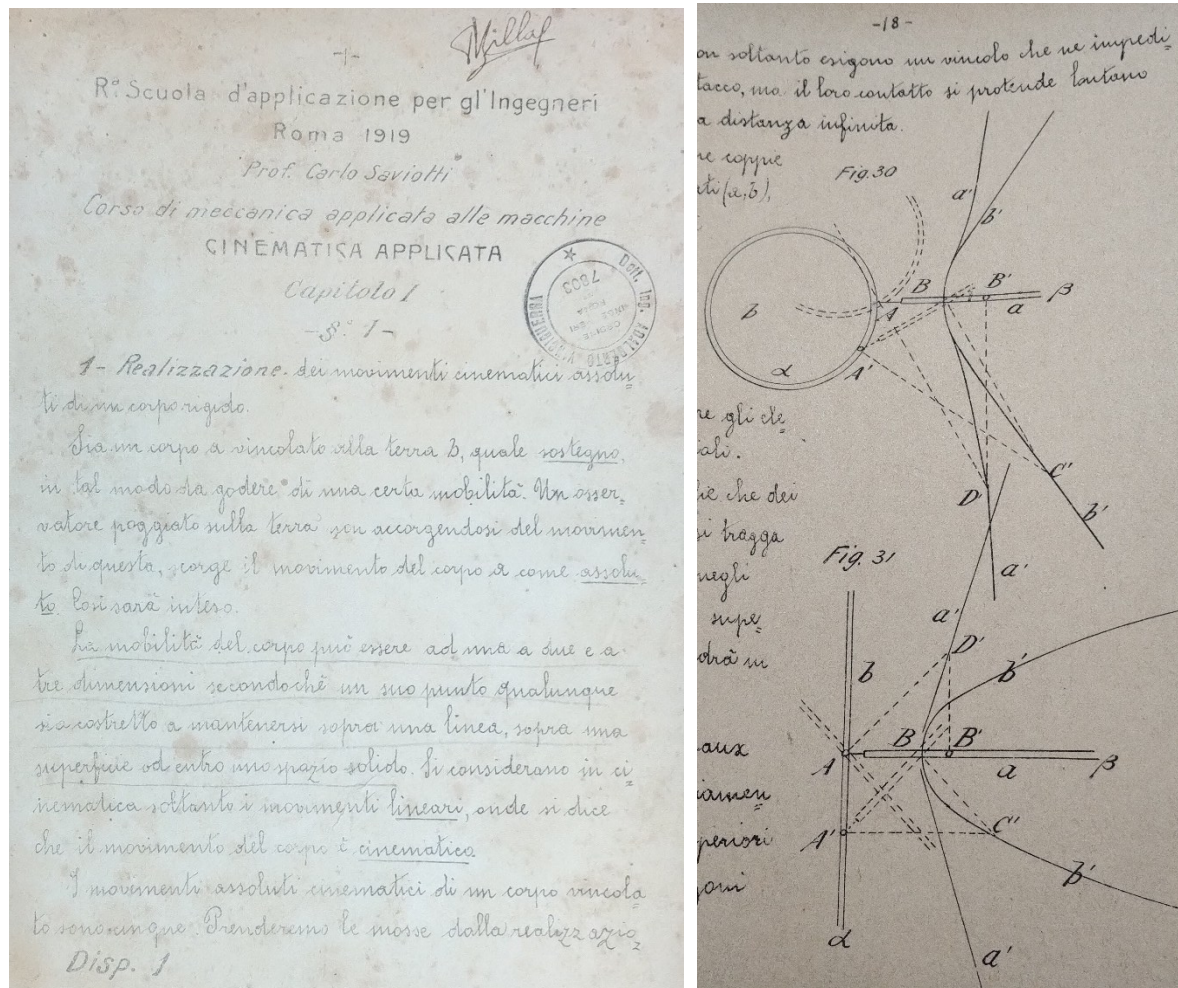 -1-
R.ª Scuola d'applicazione per gl'Ingegneri
Roma 1919
Prof. Carlo Saviotti
Corso di meccanica applicata alle macchine
CINEMATICA APPLICATA
Capitolo I
-§.° 1-
Dott. Ing. ADALBERTO
7803
1- Realizzazione dei movimenti cinematici assolu=
ti di un corpo rigido.
Sia un corpo a vincolato alla terra b, quale sostegno,
in tal modo da godere di una certa mobilità. Un osser=
vatore poggiato sulla terra non accorgendosi del movimen=
to di questa, scorge il movimento del corpo a come assolu=
to. Così sarà inteso.
La mobilità del corpo può essere ad una a due e a
tre dimensioni secondochè un suo punto qualunque
sia costretto a mantenersi sopra una linea, sopra una
superficie od entro uno spazio solido. Si considerano in ci=
nematica soltanto i movimenti lineari, onde si dice
che il movimento del corpo è cinematico.
I movimenti assoluti cinematici di un corpo vincola=
to sono cinque. Prenderemo le mosse dalla realizzazio=
Disp. 1
-18-
on soltanto esigono un vincolo che ne impedi=
tacco, ma il loro contatto si protende lontano
a distanza infinita.
re coppie
ti (a,b),
Fig. 30
a'
b'
b
A
B
B'
a
β
α
A'
re gli ele=
ali.
C'
D
b'
a'
ie che dei
si tragga
negli
supe=
drà in
Fig. 31
a'
D'
b
b'
A
B
B'
a
β
A'
C'
b'
α
a'
aux
iamen=
periori
goni